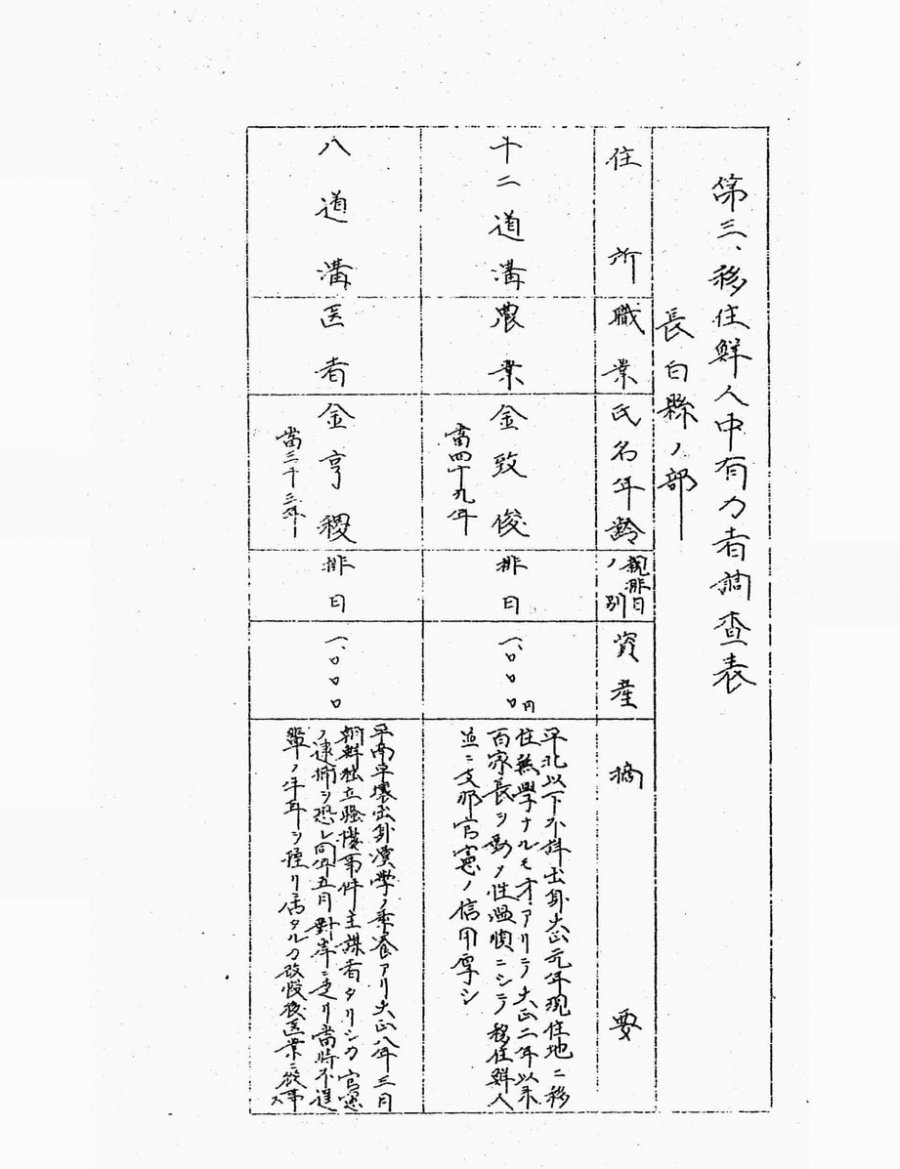 第三、移住鮮人中有力者調査表
長白縣ノ部
住所
職業
氏名年齢
親排日
ノ別
資産
摘要
十二道溝
農業
金致俊
當四十九年
排日
一、〇〇〇円
平北以下不詳出身大正元年現住地ニ移
住無學ナルモ才アリテ大正二年以来
百家長ヲ勤メ性温順ニシテ移住鮮人
並ニ支那官憲ノ信用厚シ
八道溝
医者
金亨稷
當三十三年
排日
一、〇〇〇
平南平壌出身漢學ノ素養アリ大正八年三月
朝鮮独立騒擾事件主謀者タリシカ官憲
ノ逮捕ヲ恐レ同年五月對岸ニ走リ當時不逞
輩ノ牛耳ヲ握リ居タルカ改悛後医業ニ従事ス